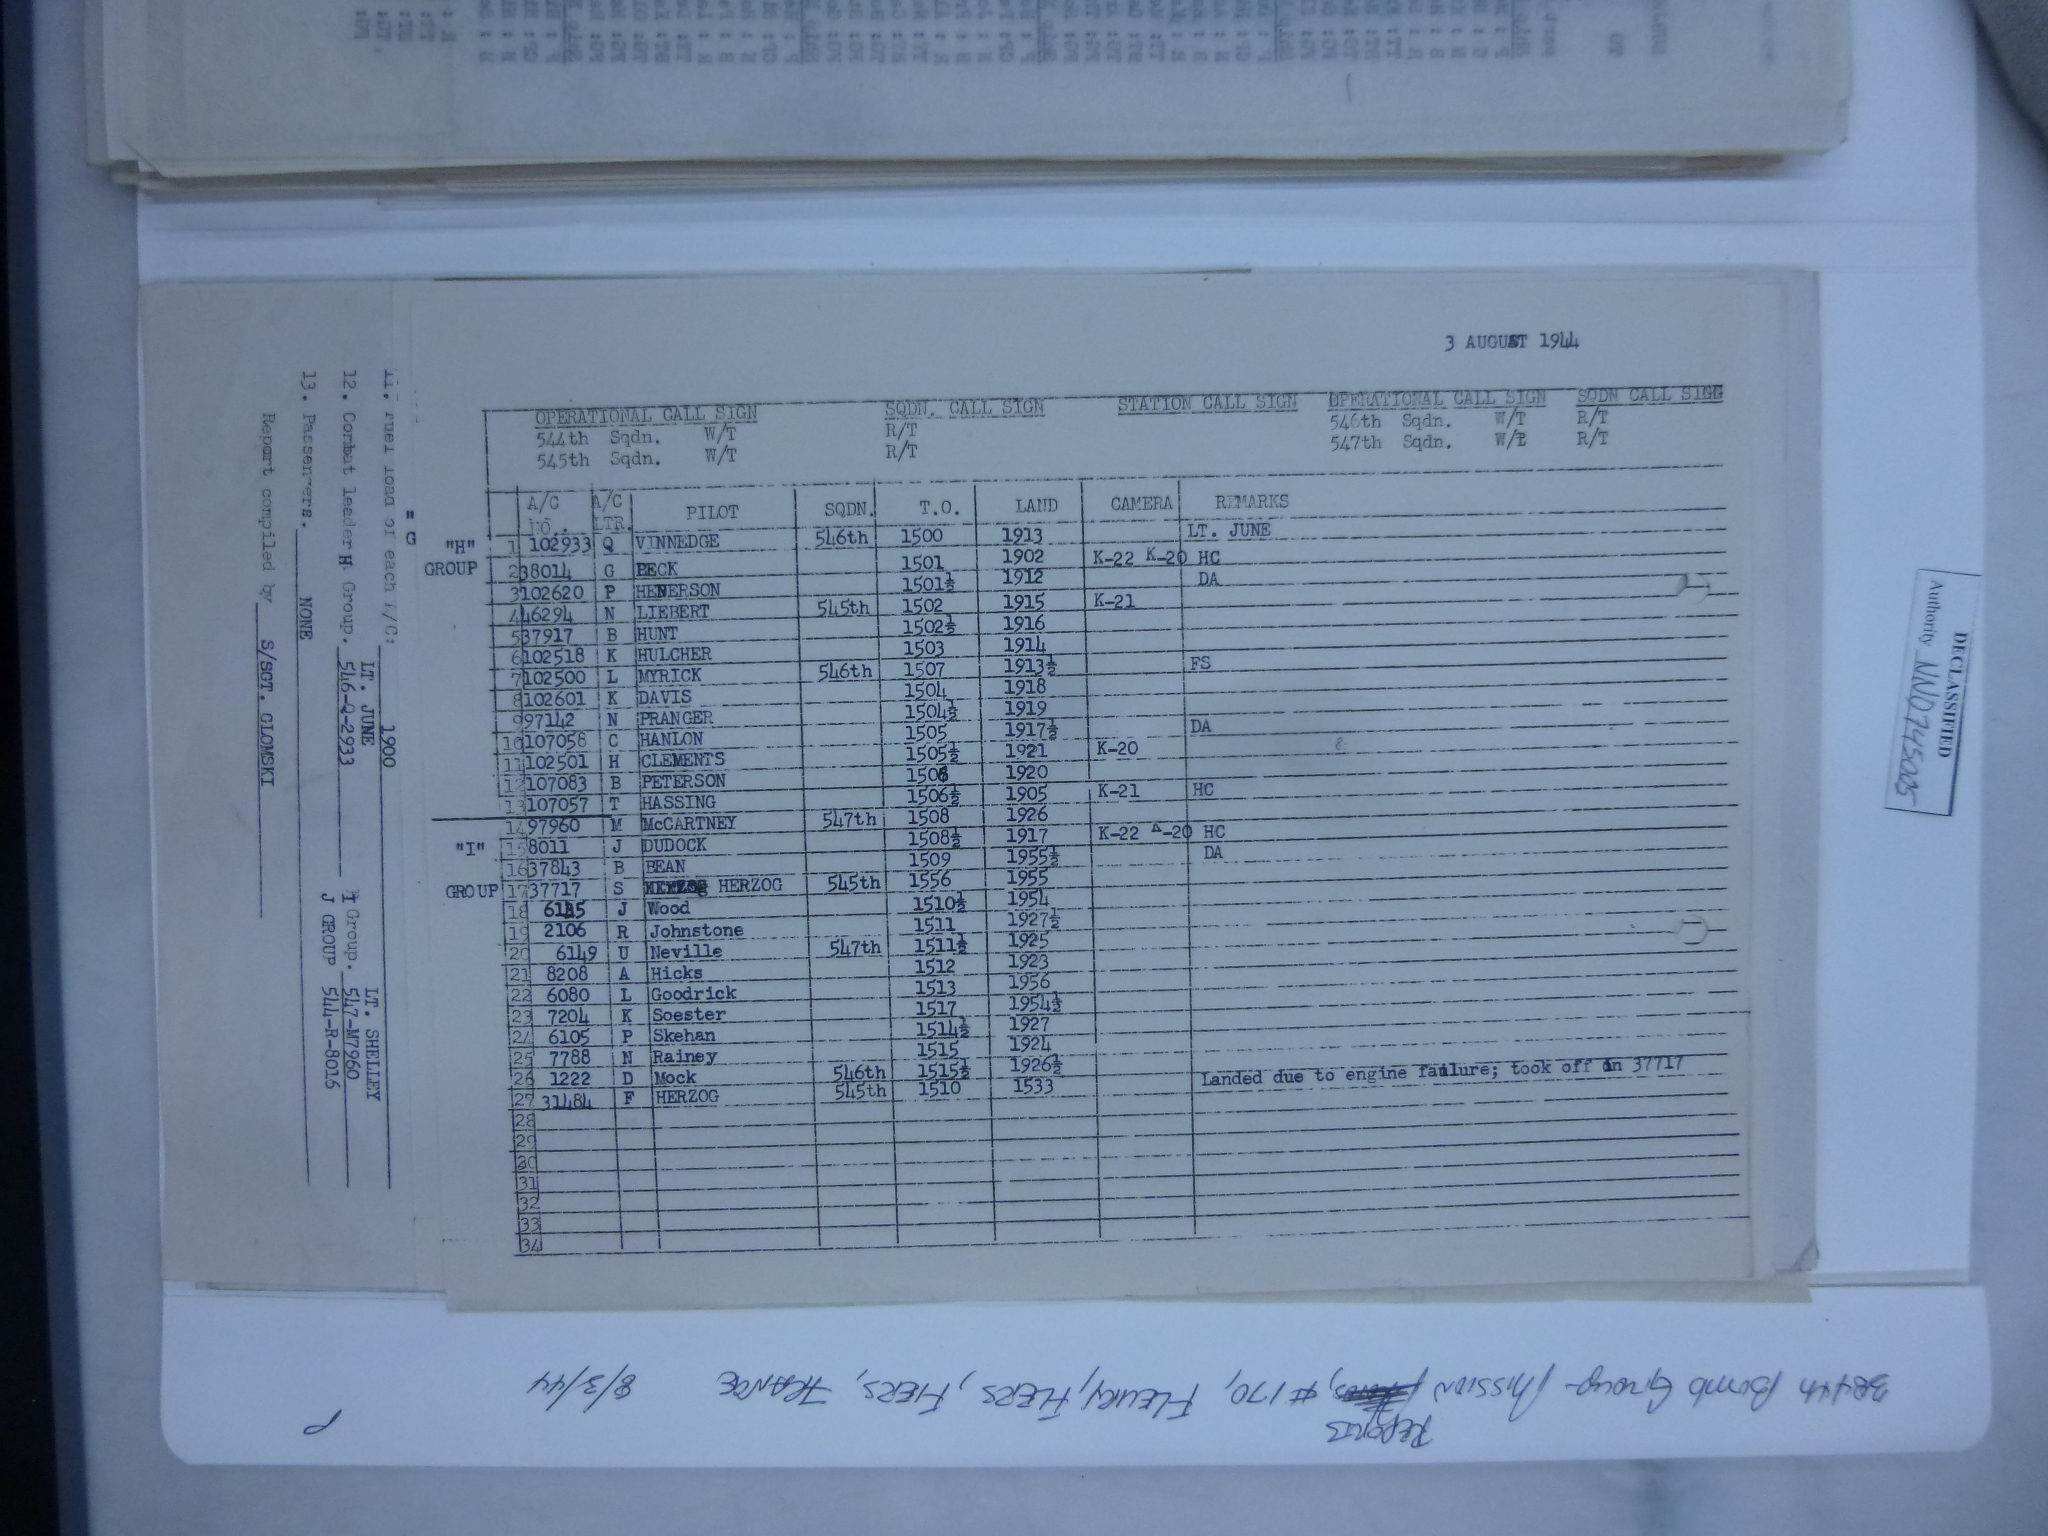 3 AUGUST 1944
OPERATIONAL CALL SIGN SQDN. CALL SIGN STATION CALL SIGN OPERATIONAL CALL SIGN SQDN CALL SIGG
544th Sqdn. W/T R/T 546th Sqdn. W/T R/T
545th Sqdn. W/T R/T 547th Sqdn. W/T R/T
A/C NO. A/C LTR. PILOT SQDN. T.O. LAND CAMERA REMARKS
"H" GROUP
1 102933 Q VINNEDGE 546th 1500 1913 LT. JUNE
2 38014 G PECK 1501 1902 K-22 K-20 HC
3 102620 P HENERSON 1501½ 1912 DA
4 46294 N LIEBERT 545th 1502 1915 K-21
5 37917 B HUNT 1502½ 1916
6 102518 K HULCHER 1503 1914
7 102500 L MYRICK 546th 1507 1913½ FS
8 102601 K DAVIS 1504 1918
9 97142 N PRANGER 1504½ 1919
10 107058 C HANLON 1505 1917½ DA
11 102501 H CLEMENTS 1505½ 1921 K-20
12 107083 B PETERSON 1506 1920
13 107057 T HASSING 1506½ 1905 K-21 HC
"I" GROUP
14 97960 M McCARTNEY 547th 1508 1926
15 8011 J DUDOCK 1508½ 1917 K-22 -20 HC
16 37843 B BEAN 1509 1955½ DA
17 37717 S HERZOG 545th 1556 1955
18 J Wood 1510½ 1954
19 2106 R Johnstone 1511 1927½
20 6149 U Neville 547th 1511½ 1925
21 8208 A Hicks 1512 1923
22 6080 L Goodrick 1513 1956
23 7204 K Soester 1517 1954½
24 6105 P Skehan 1514½ 1927
25 7788 N Rainey 1515 1924
26 1222 D Mock 546th 1515½ 1926½
27 31484 F HERZOG 545th 1510 1533 Landed due to engine failure; took off in 37717
28
29
30
31
32
33
34
" G
11. Fuel load of each A/C: 1900
LT. JUNE LT. SHELLEY
12. Combat leader H Group. 546-Q-2933 I Group. 547-M7960
J GROUP 544-R-8016
13. Passengers. NONE
Report compiled by S/SGT. GLOMSKI
DECLASSIFIED
Authority NND745005
Reports
384th Bomb Group - Mission #170, Fleury, FLERS, FIERS, FRANCE 8/3/44
P